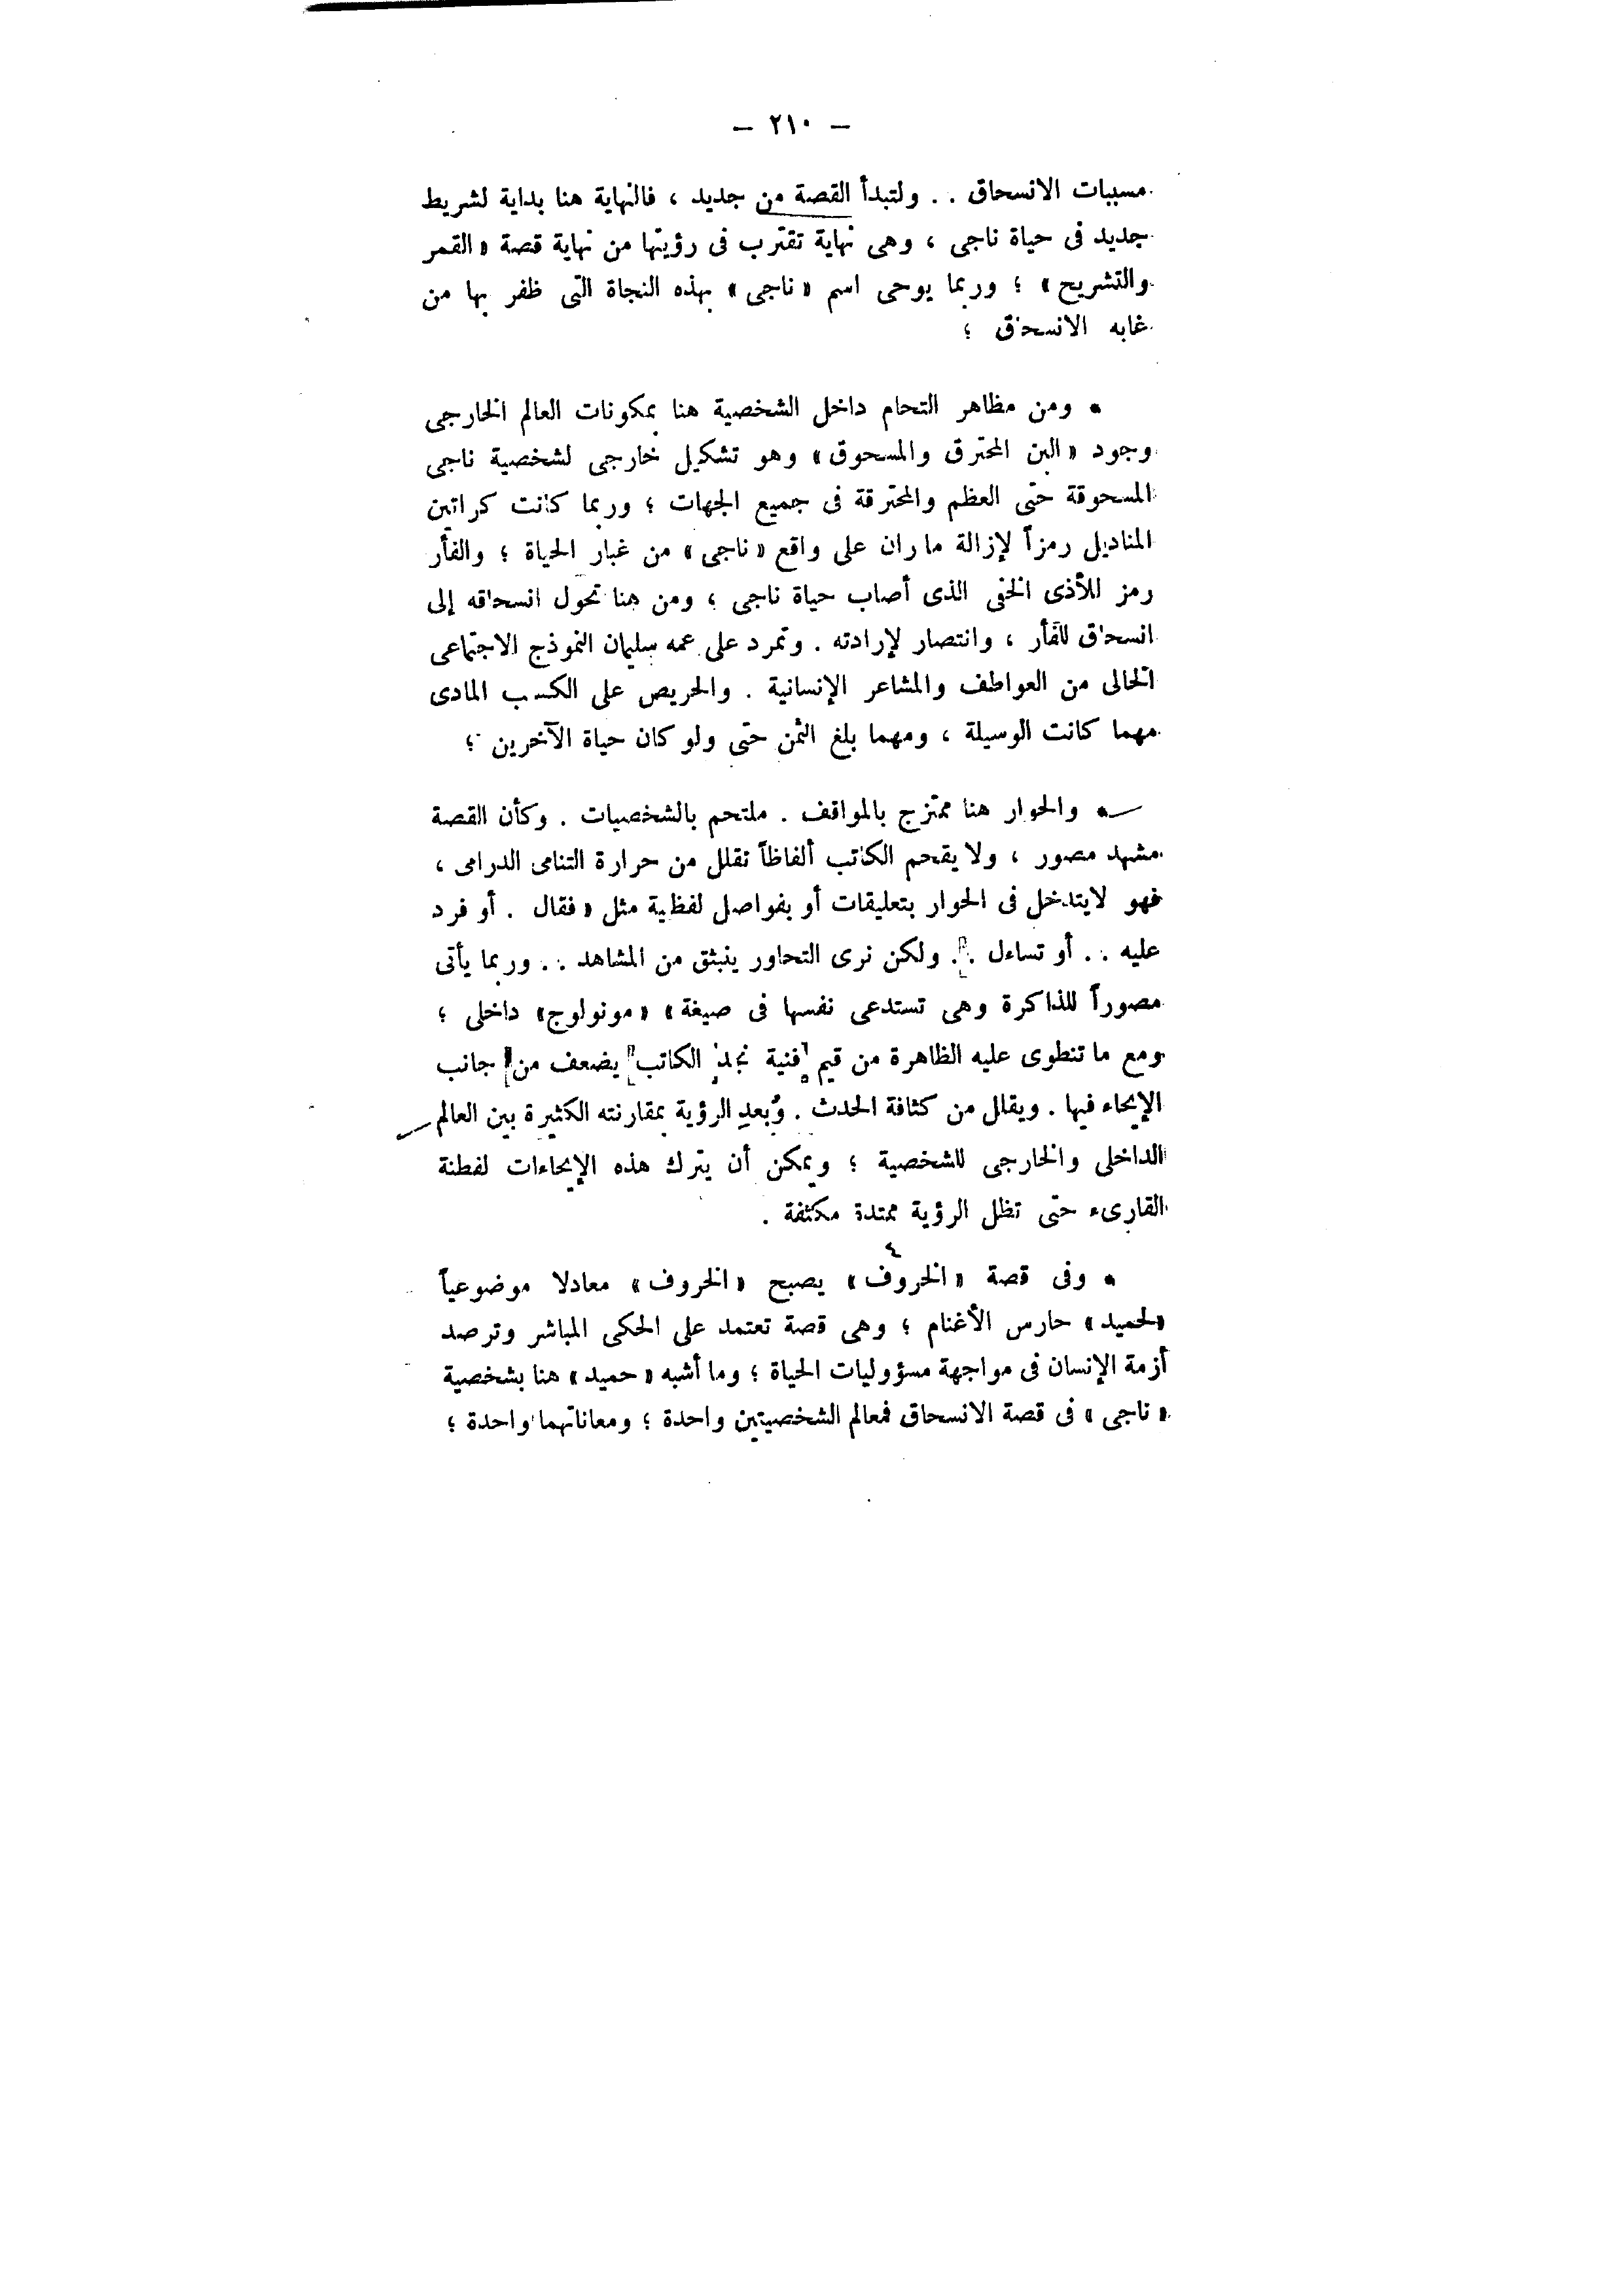 – ٢١٠ –
مسببات الانسحاق . . ولتبدأ القصة من جديد ، فالنهاية هنا بداية لشريط
جديد فى حياة ناجى ، وهى نهاية تقترب فى رؤيتها من نهاية قصة «القمر
والتشريح» ؛ وربما يوحى اسم «ناجى» بهذه النجاة التى ظفر بها من
غابه الانسحاق ؛
• ومن مظاهر التحام داخل الشخصية هنا بمكونات العالم الخارجى
وجود «البن المحترق والمسحوق» وهو تشكيل خارجى لشخصية ناجى
المسحوقة حتى العظم والمحترقة فى جميع الجهات ؛ وربما كانت كراتين
المناديل رمزاً لإزالة ما ران على واقع «ناجى» من غبار الحياة ؛ والفأر
رمز للأذى الخفى الذى أصاب حياة ناجى ؛ ومن هنا تحول انسحاقه إلى
انسحاق للفأر ، وانتصار لإرادته . وتمرد على عمه سليمان النموذج الاجتماعى
الخالى من العواطف والمشاعر الإنسانية . والحريص على الكسب المادى
مهما كانت الوسيلة ، ومهما بلغ الثمن حتى ولو كان حياة الآخرين ؛
• والحوار هنا ممتزج بالمواقف . ملتحم بالشخصيات . وكأن القصة
مشهد مصور ، ولا يقحم الكاتب ألفاظاً تقلل من حرارة التنامى الدرامى ،
فهو لايتدخل فى الحوار بتعليقات أو بفواصل لفظية مثل «فقال . أو فرد
عليه . . أو تساءل . . ولكن نرى التحاور ينبثق من المشاهد . . وربما يأتى
مصوراً للذاكرة وهى تستدعى نفسها فى صيغة» «مونولوج» داخلى ؛
ومع ما تنطوى عليه الظاهرة من قيم فنية نجد الكاتب يضعف من جانب
الإيحاء فيها . ويقلل من كثافة الحدث . وُبعدِ الرؤية بمقارنته الكثيرة بين العالم
الداخلى والخارجى للشخصية ؛ ويمكن أن يترك هذه الإيحاءات لفطنة
القارىء حتى تظل الرؤية ممتدة مكثفة .
٤
• وفى قصة «الخروف» يصبح «الخروف» معادلا موضوعياً
«لحميد» حارس الأغنام ؛ وهى قصة تعتمد على الحكى المباشر وترصد
أزمة الإنسان فى مواجهة مسؤوليات الحياة ؛ وما أشبه «حميد» هنا بشخصية
«ناجى» فى قصة الانسحاق فمعالم الشخصيتين واحدة ؛ ومعاناتهما واحدة ؛